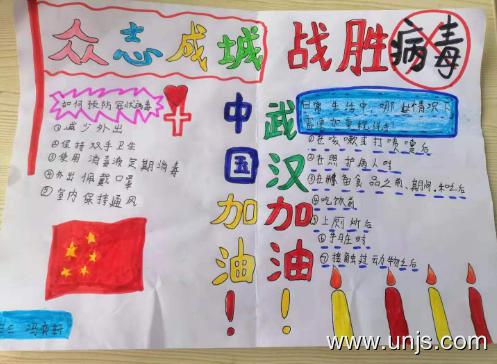 众志成城 战胜病毒
如何预防冠状病毒
①减少外出
②保持双手卫生
③使用消毒液定期消毒
④外出佩戴口罩
⑤室内保持通风
中国加油!
武汉加油!
日常生活中,哪些情况下
①在咳嗽或打喷嚏后
②在照护病人时
③在准备食品之前、期间和之后
④吃饭前
⑤上厕所后
⑥手脏时
⑦接触过动物之后
www.unjs.com